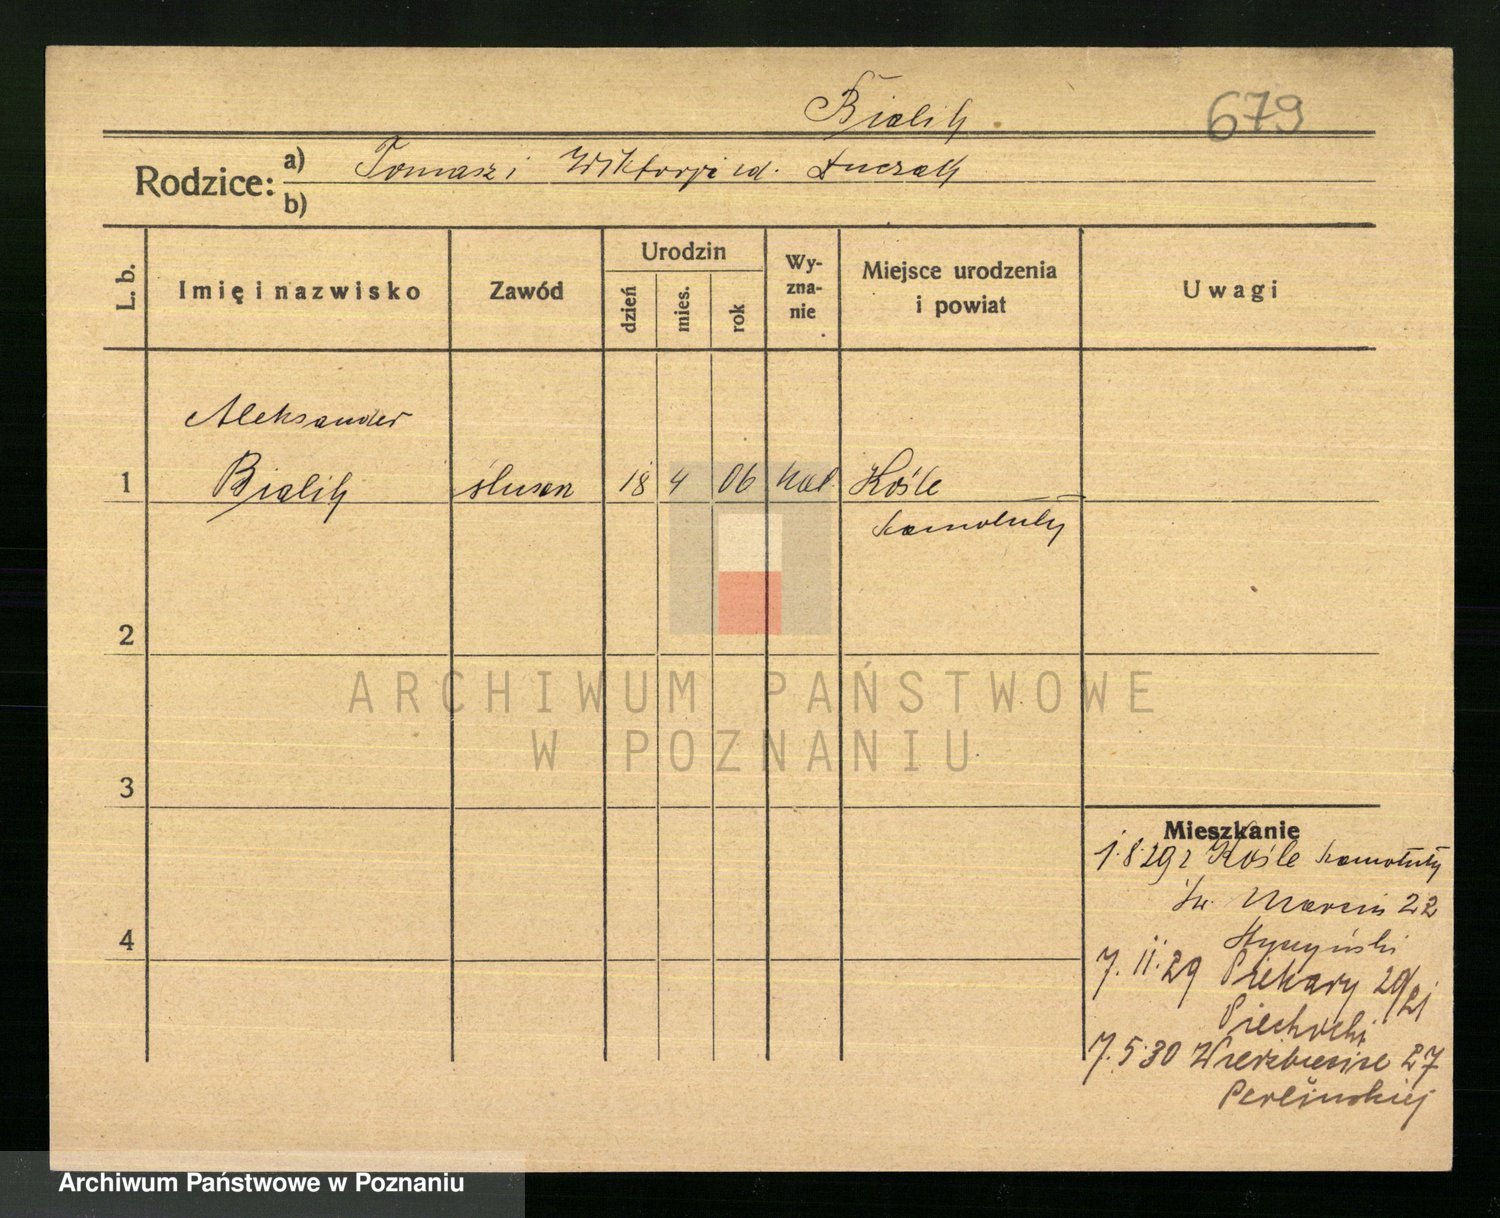 Bialik
679
Rodzice: a) Tomasz i Wiktorja ud.
b)
L. b.
Imię i nazwisko
Zawód
Urodzin
dzień
mies.
rok
Wy-
zna-
nie
Miejsce urodzenia
i powiat
Uwagi
Aleksander
1 Bialik ślusarz 18 4 06 kat. Koźle
Szamotuły
2
3
4
Mieszkanie
1.8.29 z Koźle Szamotuły
Św. Marcin 22
7.11.29 Piekary 20/21
Piechocki
7.5.30 Wierzbięcice 27
Perlińskiej
ARCHIWUM PAŃSTWOWE
W POZNANIU
Archiwum Państwowe w Poznaniu